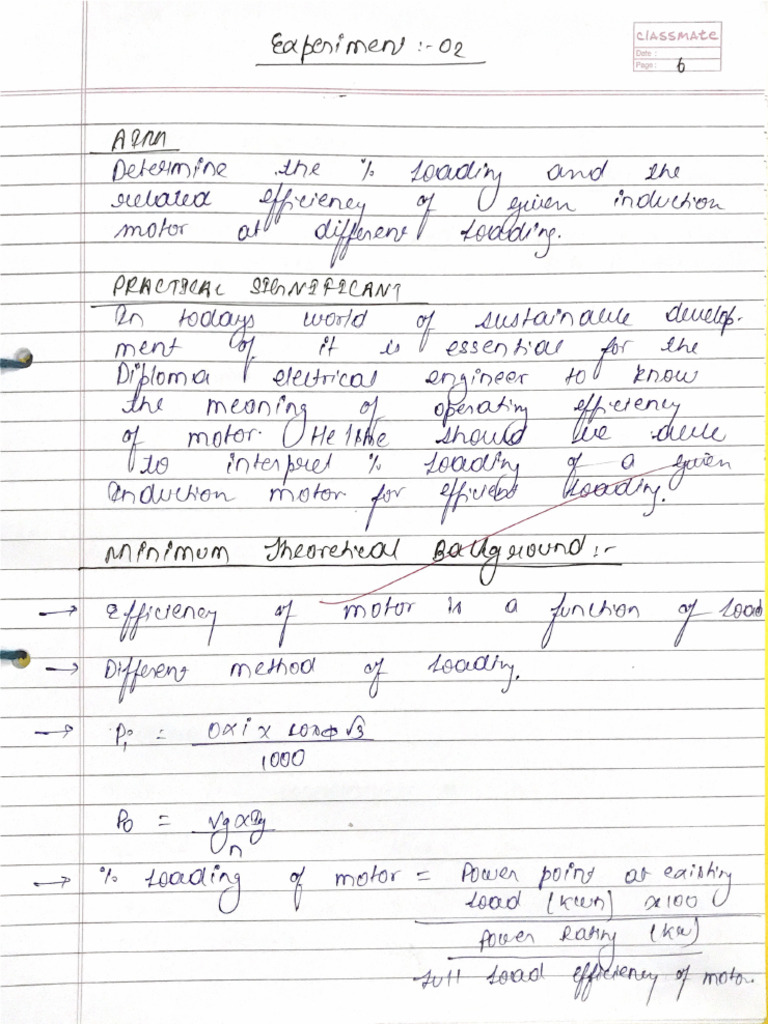 Experiment :- 02
CLASSMATE
Date :
Page : 6
AIM
Determine the % loading and the
related efficiency of given induction
motor at different loading.
PRACTICAL SIGNIFICANT
In todays world of sustainable develop-
ment of it is essential for the
Diploma electrical engineer to know
the meaning of operating efficiency
of motor. He/she should be able
to interpret % loading of a given
Induction motor for efficient loading.
Minimum Theoretical Background :-
→ Efficiency of motor is a function of load
→ Different method of loading.
→ Pi =
√3
1000
Po = Vg x Ig
n
→ % loading of motor = Power point at existing
load (kwn) x100
Power Rating (kw)
full load efficiency of motor.